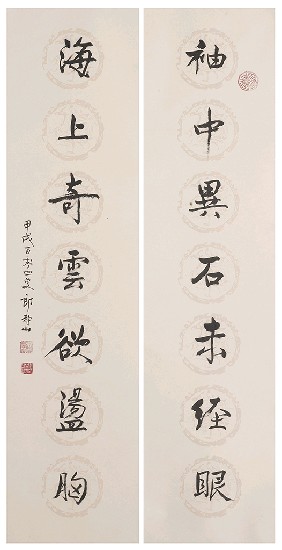 袖中異石未經眼
海上奇雲欲盪胸
甲戌百零四叟 郎靜山